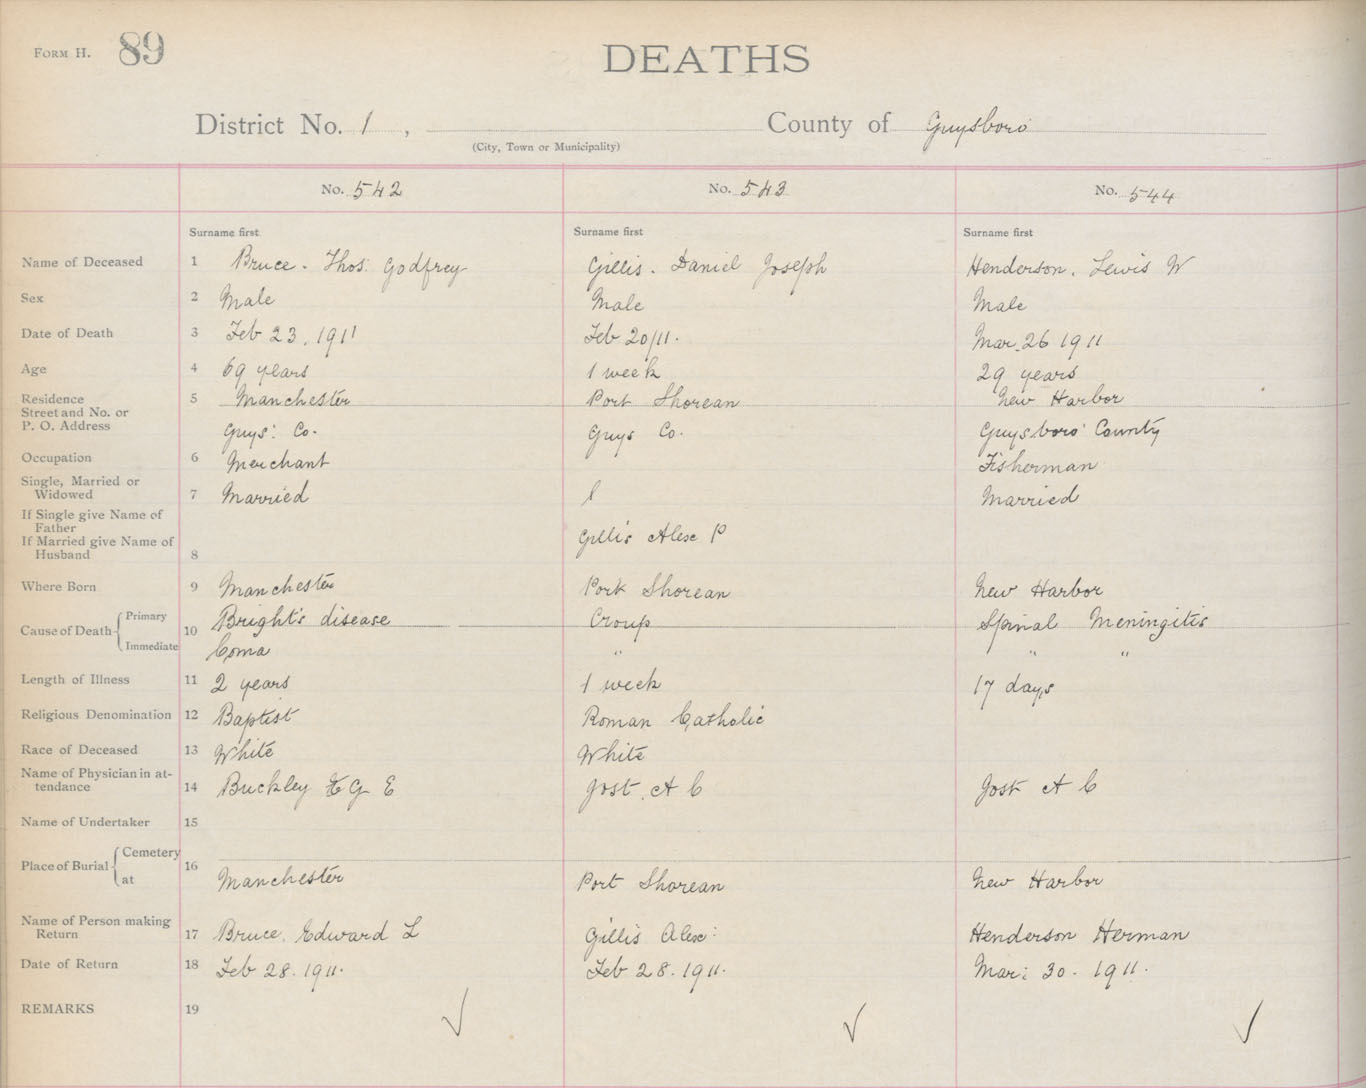 FORM H. 89
DEATHS
District No. 1 , County of Guysboro
(City, Town or Municipality)
No. 542 No. 543 No. 544
Surname first Surname first Surname first
Name of Deceased 1 Bruce. Thos. Godfrey Gillis. Daniel Joseph Henderson. Lewis W
Sex 2 Male Male Male
Date of Death 3 Feb 23. 1911 Feb 20/11. Mar. 26 1911
Age 4 69 years 1 week 29 years
Residence 5 Manchester Port Shorean New Harbor
Street and No. or
P. O. Address Guys: Co. Guys Co. Guysboro County
Occupation 6 Merchant Fisherman
Single, Married or
Widowed 7 Married Married
If Single give Name of
Father
If Married give Name of Gillis Alex P
Husband 8
Where Born 9 Manchester Port Shorean New Harbor
Cause of Death Primary 10 Bright's disease Croup Spinal Meningitis
Immediate Coma " " "
Length of Illness 11 2 years 1 week 17 days
Religious Denomination 12 Baptist Roman Catholic
Race of Deceased 13 White White
Name of Physician in at-
tendance 14 Buckley G E Jost. A C Jost A C
Name of Undertaker 15
Place of Burial Cemetery 16
at Manchester Port Shorean New Harbor
Name of Person making
Return 17 Bruce. Edward L Gillis Alex: Henderson Herman
Date of Return 18 Feb 28. 1911. Feb 28. 1911. Mar: 30. 1911.
REMARKS 19